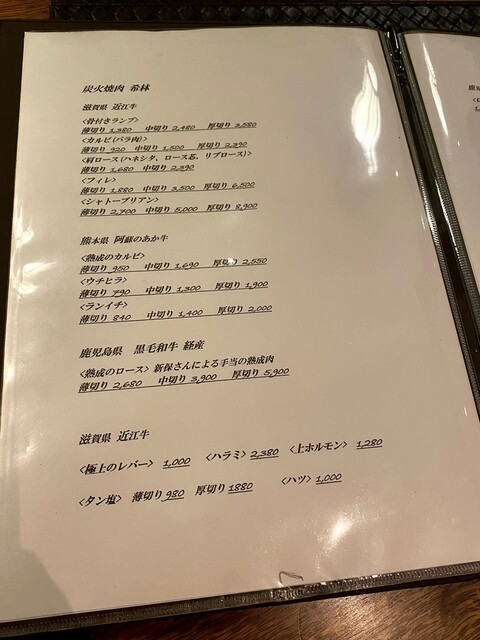 炭火焼肉 希林
滋賀県 近江牛
〈骨付きランプ〉
薄切り 1,380 中切り 2,480 厚切り 3,580
〈カルビ(バラ肉)〉
薄切り 920 中切り 1,500 厚切り 2,390
〈肩ロース(ハネシタ、ロース芯、リブロース)〉
薄切り 1,680 中切り 2,390
〈フィレ〉
薄切り 1,880 中切り 3,500 厚切り 6,500
〈シャトーブリアン〉
薄切り 2,700 中切り 5,000 厚切り 8,900
熊本県 阿蘇のあか牛
〈熟成のカルビ〉
薄切り 950 中切り 1,690 厚切り 2,550
〈ウチヒラ〉
薄切り 790 中切り 1,300 厚切り 1,900
〈ランイチ〉
薄切り 840 中切り 1,400 厚切り 2,000
鹿児島県 黒毛和牛 経産
〈熟成のロース〉新保さんによる手当の熟成肉
薄切り 2,680 中切り 3,900 厚切り 5,900
滋賀県 近江牛
〈極上のレバー〉 1,000 〈ハラミ〉2,380 〈上ホルモン〉 1,280
〈タン塩〉 薄切り 980 厚切り 1880 〈ハツ〉1,000
鹿